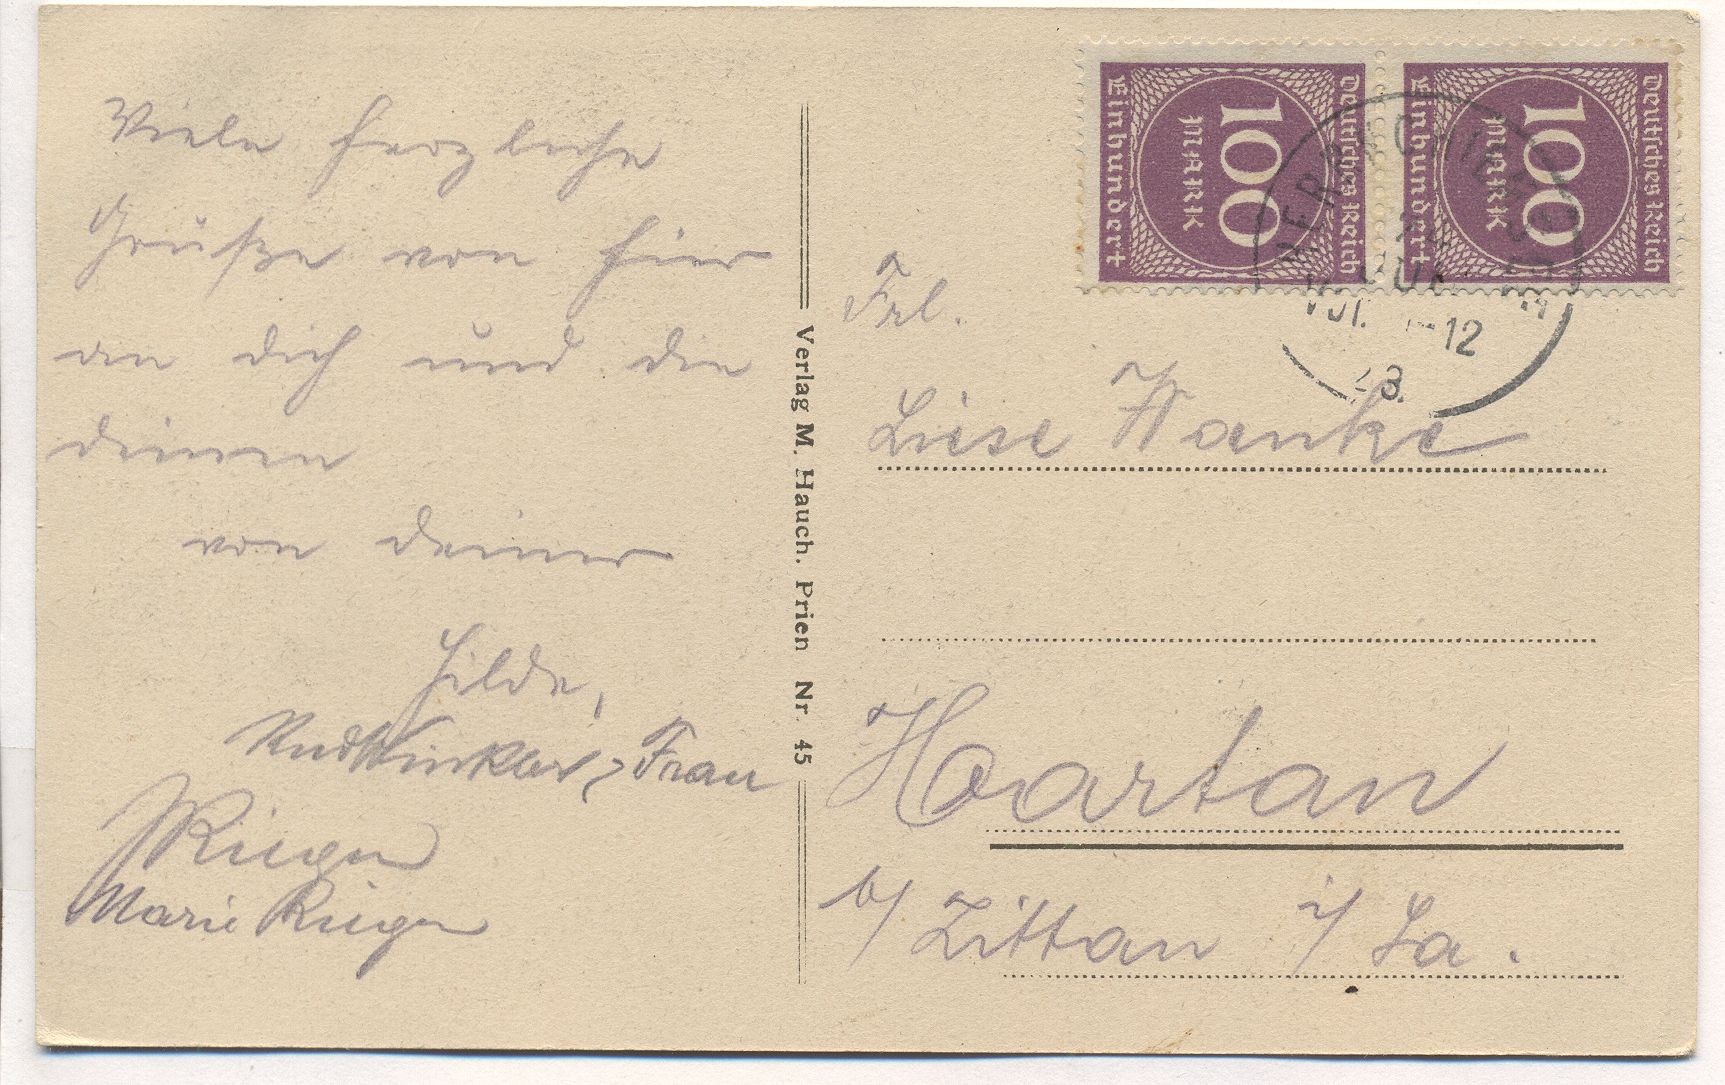 Viele herzliche
Grüße von hier
an dich und die
deinen
von deiner
Hilde,
Rud Winkler, Frau
Rieger
Marie Rieger
Verlag M. Hauch. Prien Nr. 45
Deutsches Reich
100
MARK
Einhundert
Deutsches Reich
100
MARK
Einhundert
HERRNCHIEMSEE
12
23.
Frl.
Liese Wanke
Hartau
b/ Zittau i/ Sa.